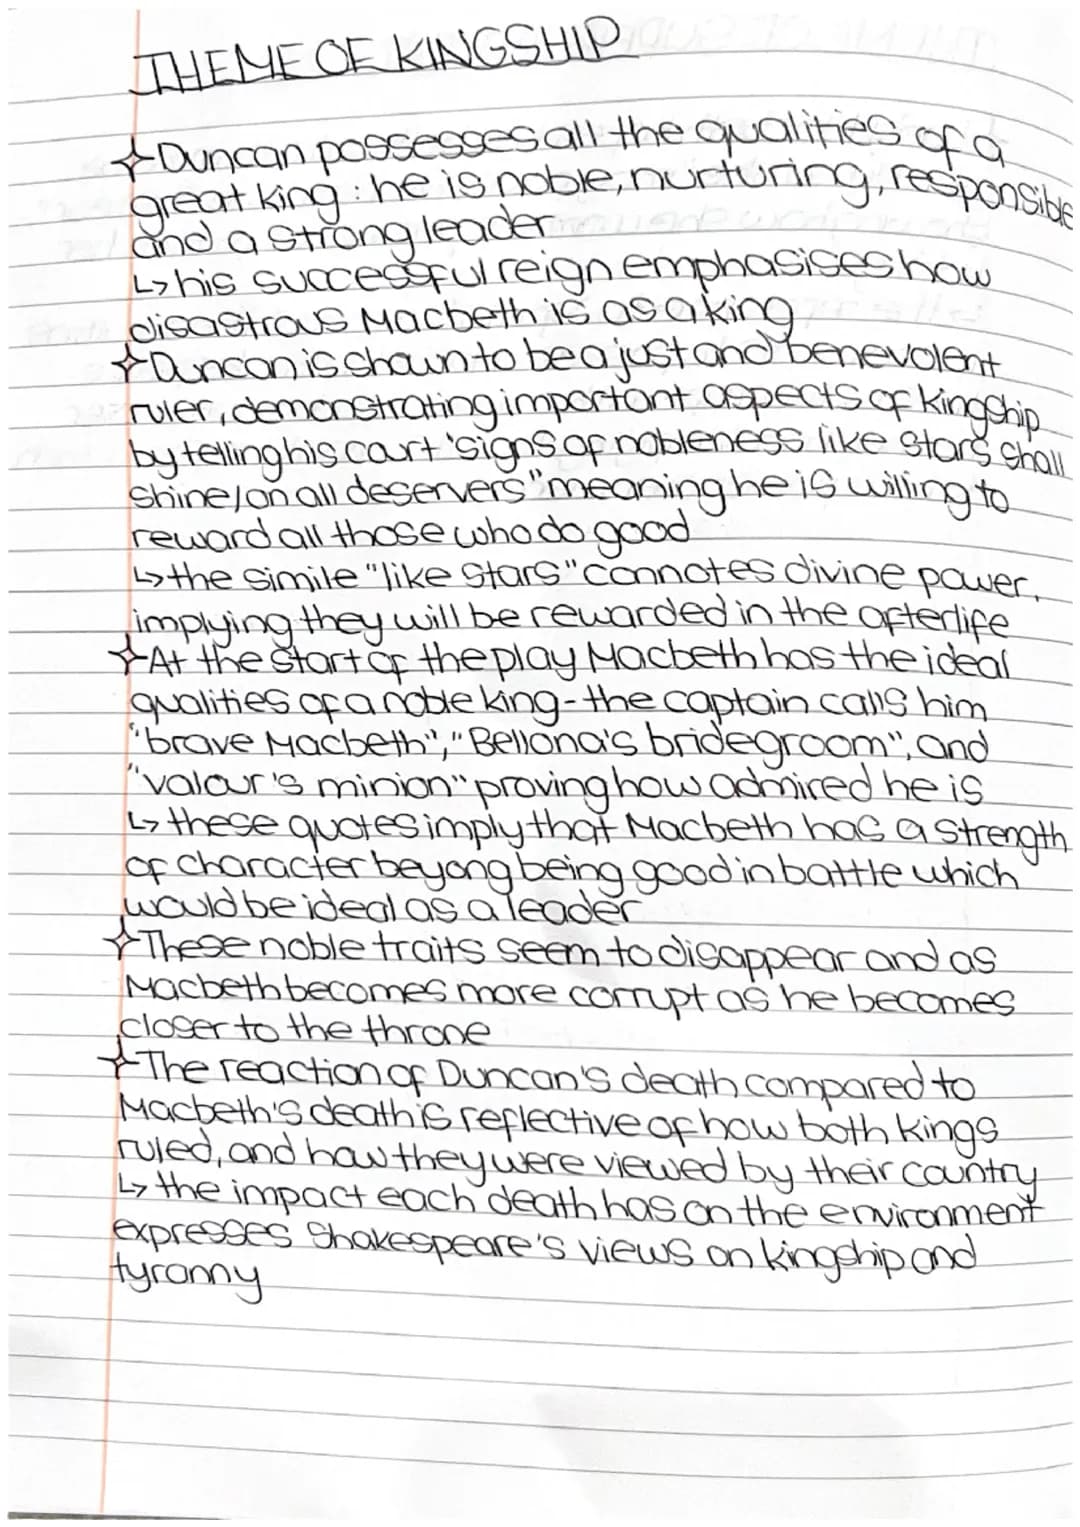 THEME OF KINGSHIP
✧Duncan possesses all the qualities of a
great king: he is noble, nurturing, responsible
and a strong leader
↳ his successful reign emphasises how
disastrous Macbeth is as a king
✧Duncan is shown to be a just and benevolent
ruler, demonstrating important aspects of kingship
by telling his court 'signs of nobleness like stars shall
shine/on all deservers" meaning he is willing to
reward all those who do good
↳ the simile "like stars" connotes divine power,
implying they will be rewarded in the afterlife
✧At the start of the play Macbeth has the ideal
qualities of a noble king - the captain calls him
"brave Macbeth", "Bellona's bridegroom", and
"valour's minion" proving how admired he is
↳ these quotes imply that Macbeth has a strength
of character beyong being good in battle which
would be ideal as a leader
✧These noble traits seem to disappear and as
Macbeth becomes more corrupt as he becomes
closer to the throne
✧The reaction of Duncan's death compared to
Macbeth's death is reflective of how both kings
ruled, and how they were viewed by their country
↳ the impact each death has on the environment
expresses Shakespeare's views on kingship and
tyranny